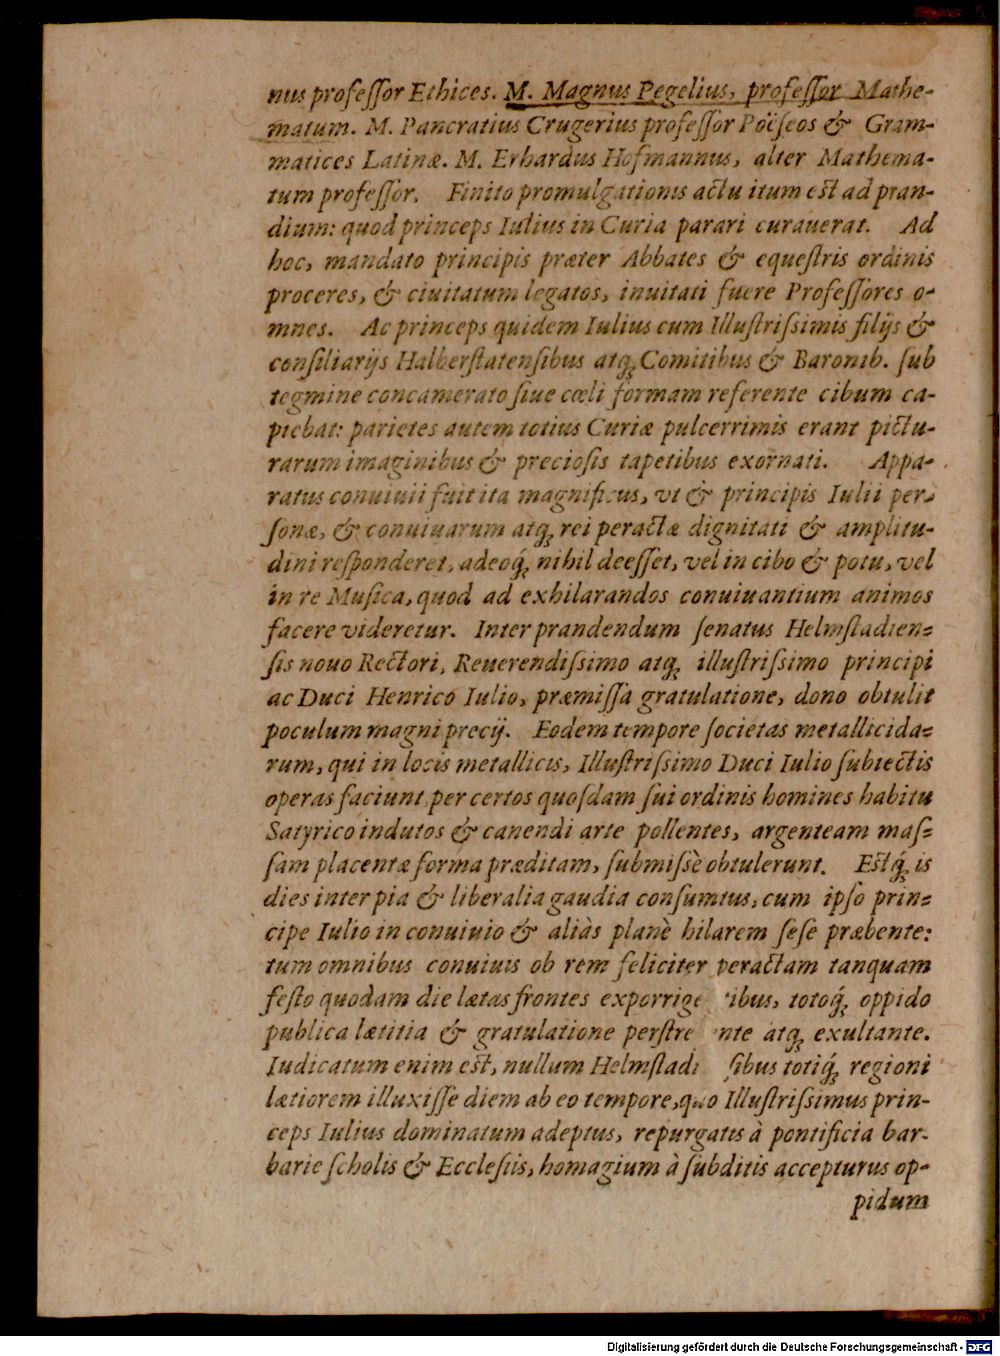 nus profeſſor Ethices. M. Magnus Pegelius, profeſſor Mathe-
matum. M. Pancratius Crugerius profeſſor Poëſeos & Gram-
matices Latinæ. M. Erhardus Hofmannus, alter Mathema-
tum profeſſor. Finito promulgationis actu itum est ad pran-
dium: quod princeps Iulius in Curia parari curauerat. Ad
hoc, mandato principis præter Abbates & equeſtris ordinis
proceres, & ciuitatum legatos, inuitati fuere Profeſſores o-
mnes. Ac princeps quidem Iulius cum Illuſtriſsimis filijs &
conſiliarijs Halberſtatenſibus atq; Comitibus & Baronib. ſub
tegmine concamerato ſiue cœli formam referente cibum ca-
piebat: parietes autem totius Curiæ pulcerrimis erant pictu-
rarum imaginibus & precioſis tapetibus exornati. Appa-
ratus conuiuii fuit ita magnificus, vt & principis Iulii per-
ſonæ, & conuiuarum atq; rei peractæ dignitati & amplitu-
dini reſponderet, adeoq́; nihil deeſſet, vel in cibo & potu, vel
in re Muſica, quod ad exhilarandos conuiuantium animos
facere videretur. Inter prandendum ſenatus Helmſtadien-
ſis nouo Rectori, Reuerendiſsimo atq; illuſtriſsimo principi
ac Duci Henrico Iulio, præmiſſa gratulatione, dono obtulit
poculum magni precij. Eodem tempore ſocietas metallicida-
rum, qui in locis metallicis, Illuſtriſsimo Duci Iulio ſubiectis
operas faciunt per certos quoſdam ſui ordinis homines habitu
Satyrico indutos & canendi arte pollentes, argenteam maſ-
ſam placentæ forma præditam, ſubmiſsè obtulerunt. Estq́; is
dies inter pia & liberalia gaudia conſumtus, cum ipſo prin-
cipe Iulio in conuiuio & aliàs planè hilarem ſeſe præbente:
tum omnibus conuiuis ob rem feliciter peractam tanquam
feſto quodam die lætas frontes exporrige ibus, totoq́; oppido
publica lætitia & gratulatione perſtre nte atq; exultante.
Iudicatum enim est, nullum Helmſtadi ſibus totiq́; regioni
lætiorem illuxiſſe diem ab eo tempore, quo Illuſtriſsimus prin-
ceps Iulius dominatum adeptus, repurgatis à pontificia bar-
barie ſcholis & Eccleſiis, homagium à ſubditis accepturus op-
pidum
Digitalisierung gefördert durch die Deutsche Forschungsgemeinschaft - DFG